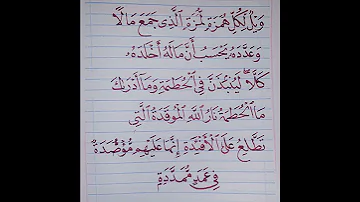 وَيْلٌ لِّكُلِّ هُمَزَةٍ لُّمَزَةٍ الَّذِى جَمَعَ مَالًا
وَعَدَّدَهُ يَحْسَبُ أَنَّ مَالَهُ أَخْلَدَهُ
كَلَّا لَيُنبَذَنَّ فِى الْحُطَمَةِ وَمَا أَدْرَىٰكَ
مَا الْحُطَمَةُ نَارُ اللَّهِ الْمُوقَدَةُ الَّتِى
تَطَّلِعُ عَلَى الْأَفْئِدَةِ إِنَّهَا عَلَيْهِم مُّؤْصَدَةٌ
فِى عَمَدٍ مُّمَدَّدَةٍ